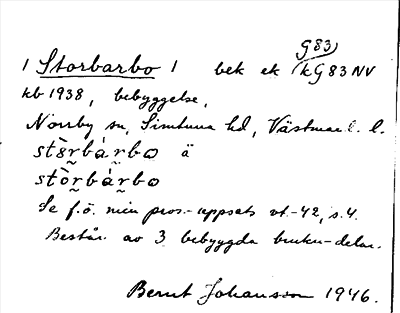 G 83
1 Storbarbo 1 bek ek (kG 83 NV
kb 1938, bebyggelse,
Norrby sn, Simtuna hd, Västmanl. l.
stòrbárbo ä
stòrbárbo
Se f.ö. min pros.-uppsats vt.-42, s. 4.
Består av 3 bebyggda bruknn-delar.
Bernt Johansson 1946.